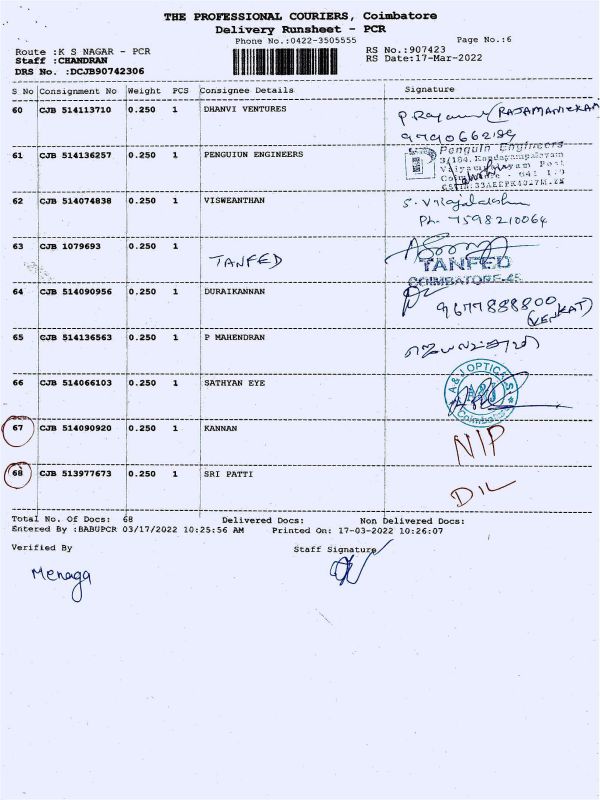 THE PROFESSIONAL COURIERS, Coimbatore
Delivery Runsheet - PCR
Phone No.:0422-3505555 Page No.:6
Route :K S NAGAR - PCR RS No.:907423
Staff :CHANDRAN RS Date:17-Mar-2022
DRS No. :DCJB90742306
S No Consignment No Weight PCS Consignee Details Signature
60 CJB 514113710 0.250 1 DHANVI VENTURES (RAJAMANICKAM
61 CJB 514136257 0.250 1 PENGUIUN ENGINEERS Penguin Engineers
3/184, Kandayampalayam
62 CJB 514074838 0.250 1 VISWEANTHAN
Ph. 7598210064
63 CJB 1079693 0.250 1 TANFED TANFED
COIMBATORE-45
64 CJB 514090956 0.250 1 DURAIKANNAN 9677888800
(VENKAT)
65 CJB 514136563 0.250 1 P MAHENDRAN
66 CJB 514066103 0.250 1 SATHYAN EYE A & J OPTICALS
67 CJB 514090920 0.250 1 KANNAN NIP
68 CJB 513977673 0.250 1 SRI PATTI D/L
Total No. Of Docs: 68 Delivered Docs: Non Delivered Docs:
Entered By :BABUPCR 03/17/2022 10:25:56 AM Printed On: 17-03-2022 10:26:07
Verified By Staff Signature
Menaga